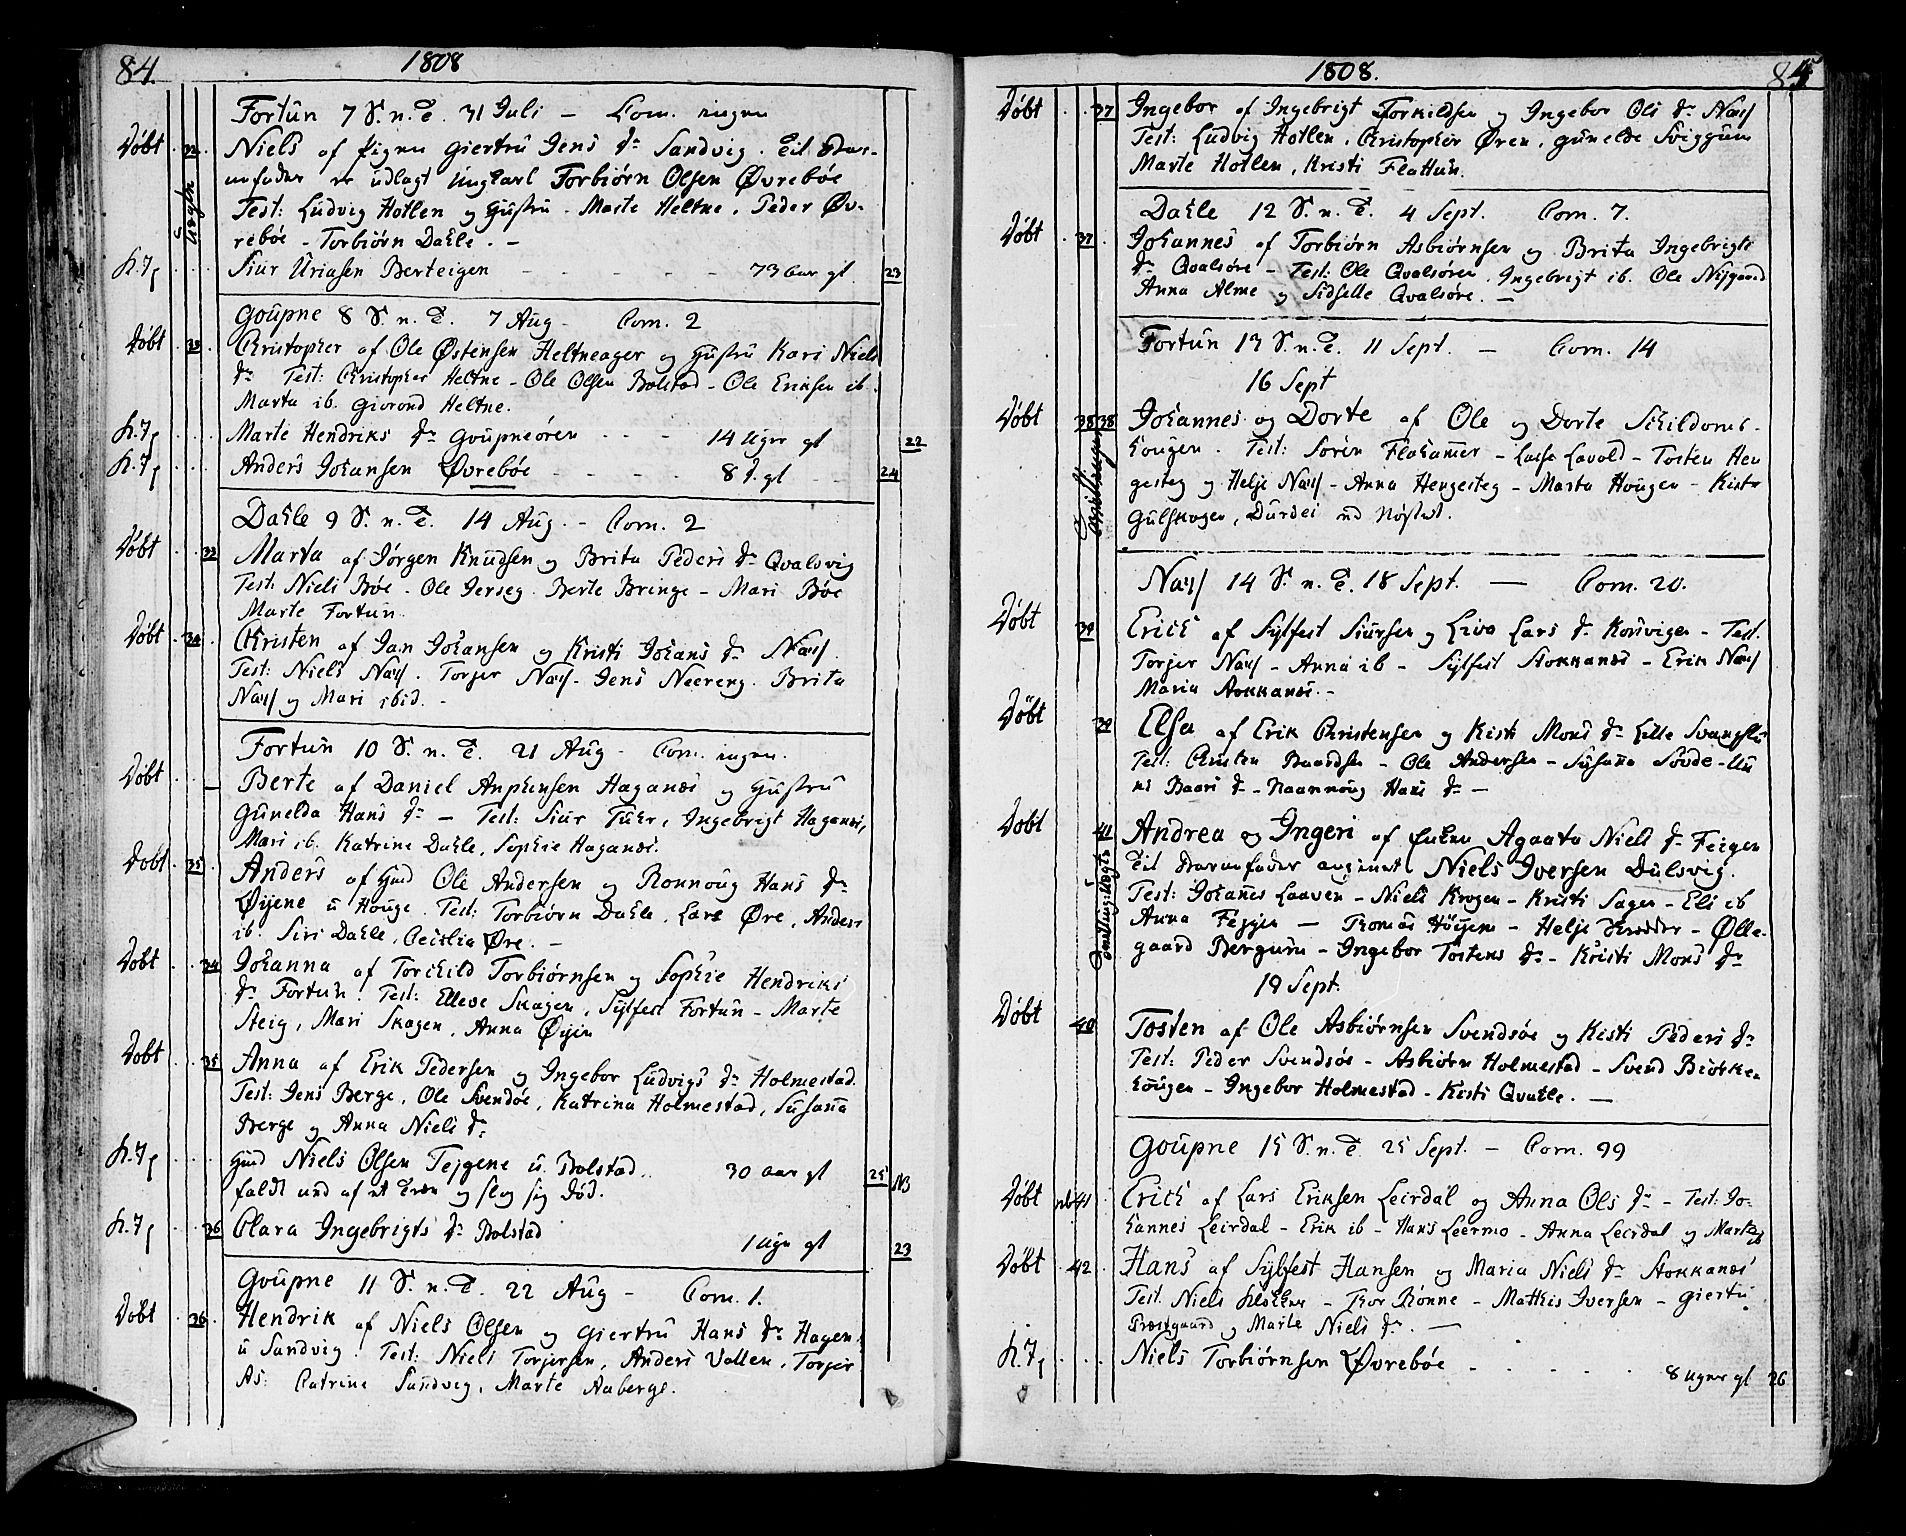 84. 1808
Fortun 7 S. n. T. 31 Juli – Com. ingen
Døbt 32 Niels af pigen Giertru Jens Dr Sandvig. Til Barne
uægte
fader er udlagt Ungkarl Torbiørn Olsen Øvrebøe
Test: Ludvig Hotlen og Hustru - Marte Heltne. Peder Øv-
rebøe - Torbiørn Dahle. -
Siur Uriasen Berteigen - - - - - 73 aar gl 23
Goupne 8 S. n. T. 7 Aug - Com. 2
Døbt 33 Christopher af Ole Østensen Heltneager og Hustru Kari Niels
Dr Test: Christopher Heltne - Ole Olsen Bolstad - Ole Eriksen ib.
Marta ib. Giorond Heltne.
Marte Hendriks Dr Goupneøren - - - 14 Uger gl 22
Anders Johansen Øvrebøe - - - - 8 D. gl - - 24
Dahle 9 S. n. T. 14 Aug. - Com. 2
Døbt 33 Marta af Jørgen Knudsen og Brita Peders Dr Qvalsvig
Test: Niels Bøe - Ole Jerseg. Berte Bringe - Mari Bøe
Marte Fortun.
Døbt 34 Christen af Jan Johansen og Kristi Johans Dr Næss.
Test: Niels Næss. Torjer Næss - Jens Neereng. Brita
Næss og Mari ibid. -
Fortun 10 S. n. T. 21 Aug - Com. ingen.
Døbt Berte af Daniel Anphensen Haganæs og Hustru
Gunelda Hans Dr - Test: Siur Fuhr, Ingebrigt Haganæs,
Mari ib. Katrine Dahle, Sophie Haganæs.
Døbt 35 Anders af Gmd Ole Andersen og Ronnoug Hans Dr
Øyene u Houge. Test: Torbiørn Dahle, Lars Øre, Anders
ib. Siri Dahle, Cecilia Øre. -
Døbt 34 Johanna af Torchild Torbiørnsen og Sophie Hendriks
Dr Fortun. Test: Elleve Skagen, Sylfest Fortun - Marte
Steig, Mari Skagen, Anna Øyen
Døbt 35 Anna af Erik Pedersen og Ingebor Ludvigs Dr Holmestad.
Test: Jens Berge, Ole Svendøe, Katrina Holmestad, Susanna
Berge og Anna Niels Dr
Gmd Niels Olsen Tejgene u. Bolstad .. 30 aar gl 25 NB
faldt ned af et Træe og slog sig død.
36 Clara Ingebrigts Dr Bolstad 1 Uge gl 23
Goupne 11 S. n. T. 22 Aug - Com. 1.
Døbt 36 Hendrik af Niels Olsen og Giertru Hans Dr Hagen
u Sandvig. Test: Niels Torjersen, Anders Vollen, Torjer
As: Catrine Sandvig, Marte Aaberge.
1808. 85
Døbt 37 Ingebor af Ingebrigt Torkildsen og Ingebor Ols Dr Næss
Test: Ludvig Hotlen, Christopher Øren, Gunelde Sviggum
Marte Hotlen, Kristi Flattun.
Dahle 12 S. n. T. 4 Sept. Com. 7.
Døbt 37 Johannes af Torbiørn Asbiørnsen og Brita Ingebrigts
Dr Qvalsøre - Test: Ole Qvalsøren. Ingebrigt ib. Ole Nygaard
Anna Alme og Sidselle Qvalsøre. -
Fortun 13 S. n. T. 11 Sept. - Com. 14
16 Sept
Døbt 38 38 Johannes og Dorte af Ole og Dorte Skildoms-
Tvillinger
hougen. Test: Søren Flahamer - Lasse Lavold - Tosten Hen
gesteg og Helje Næss - Anna Hengesteg - Marta Hougen - Kista
Gulskogen, Durdei
Næss 14 S. n. T. 18 Sept. - Com. 20.
Døbt 39 Erich af Sylfest Siursen og Liva Lars Dr Kornvigen - Test.
Torjer Næss - Anna ib - Sylfest Stokkanæs - Erik Næss
Maria Stokkanæs. -
Døbt 39 Elsa af Erik Christensen og Kisti Mons Dr Lille
Test: Christen Baardsen - Ole Andersen - Susanna Sovde - Un
ni Baars Dr - Raannoug Hans Dr -
Døbt 41 Andrea og Ingeri af Enken Agaata Niels Dr Feigen
Tvillinger uægte
Til Barnefader angivet Niels Iversen Dulsvig.
Test: Johannes Laaven - Niels Krogen - Kristi Sagen - Eli ib
Anna Fejgen - Thomas Høyem - Helje - Ølle-
gaard Bergum - Ingebor Tostens Dr - Kristi Mons Dr
19 Sept.
Døbt 40 Tosten af Ole Asbiørnsen Svendsøe og Kisti Peders Dr
Test: Peder Svendsøe - Asbiørn Holmestad - Svend Biørke
hougen - Ingebor Holmestad - Kisti Qvahle. -
Goupne 15 S. n. T. 25 Sept. - Com. 99
Døbt nb 41 Erich af Lars Eriksen Leirdal og Anna Ols Dr - Test: Jo-
hannes Leirdal - Erik ib - Hans Leermo - Anna Leirdal og Marte ib
Døbt 42 Hans af Sylfest Hansen og Maria Niels Dr Stokkanæs
Test. Niels Klokker - Thor Rønne - Matthis Iversen - Giertru
Præstgaard og Marte Niels Dr. -
Niels Torbiørnsen Øvrebøe - - - - 8 Uger gl 26